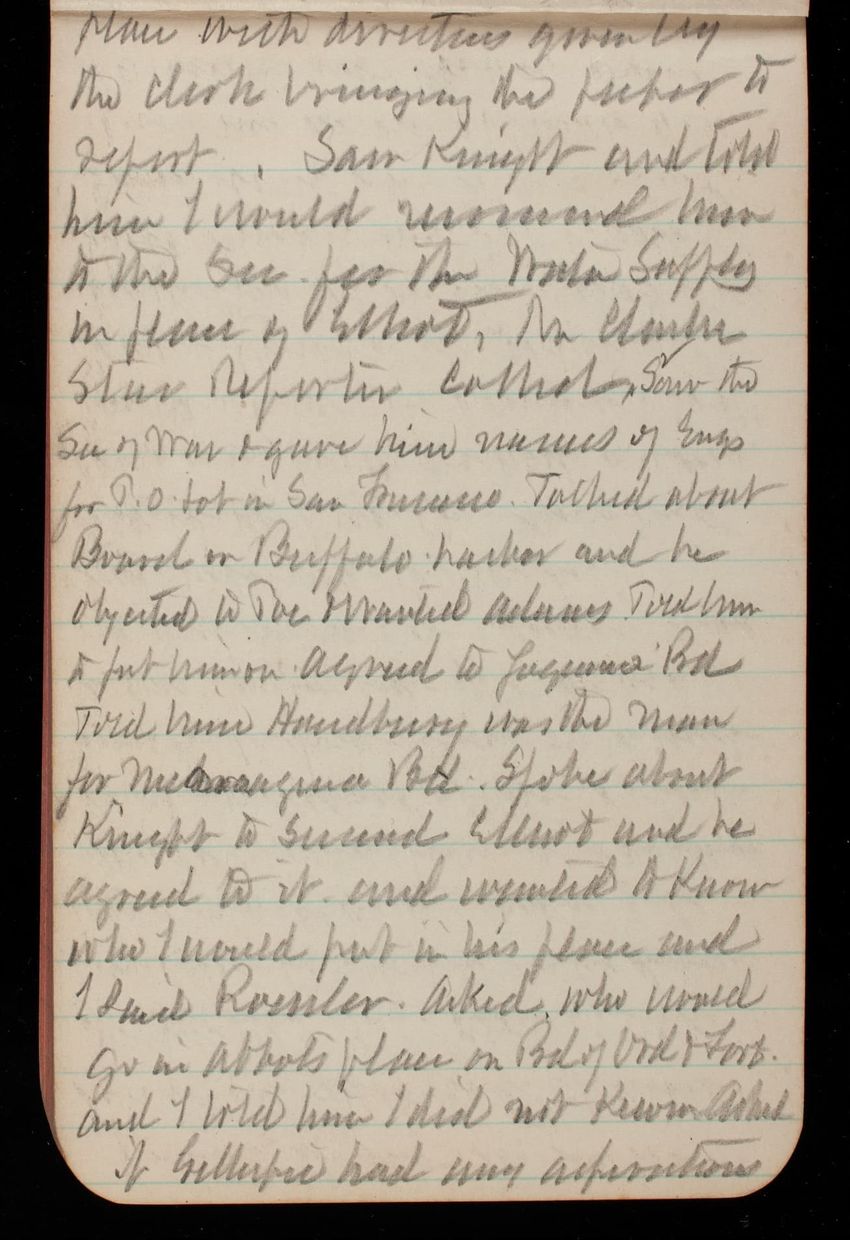 place with directions given by
the clerk bringing the paper to
report. Saw Knight and told
him I would recommend him
to the Sec. for the Water Supply
in place of Elliot, Mr Clarke
Star Reporter Called, Saw the
Sec of War & gave him names of Engs
for P.O. lot in San Francisco. Talked about
Board on Buffalo harbor and he
objected to Poe & wanted Adams Told him
to put him on. Agreed to Board
Told him Handbury was the man
for Bd. Spoke about
Knight to succeed Elliot and he
agreed to it. and wanted to know
who I would put in his place and
I said Roessler. Asked who would
go in Abbots place on Bd of Ord & Fort.
and I told him I did not know Asked
if Gillespie had any aspirations